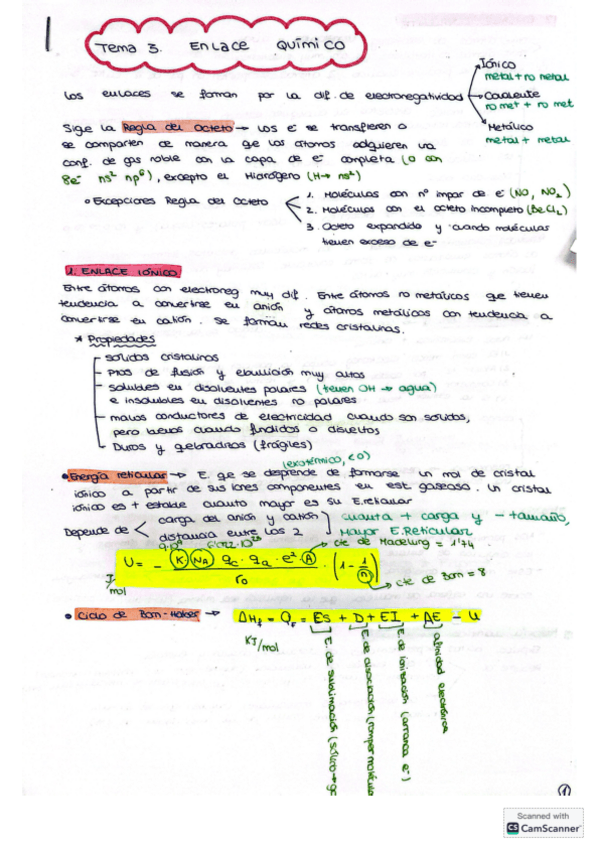 1
Tema 3. Enlace Químico
Los enlaces se forman por la dif. de electronegatividad
Iónico
metal + no metal
Covalente
no met + no met
Metálico
metal + metal
Sigue la Regla del Octeto → Los e⁻ se transfieren o
se comparten de manera qe los átomos adquieren una
conf. de gas noble con la capa de e⁻ completa (o con
8e⁻ ns² np⁶), excepto el Hidrógeno (H → ns²)
• Excepciones Regla del Octeto
1. Moléculas con nº impar de e⁻ (NO, NO₂)
2. Moléculas con el octeto incompleto (BeCl₂)
3. Octeto expandido y cuando moléculas
tienen exceso de e⁻
1. ENLACE IÓNICO
Entre átomos con electroneg muy dif. Entre átomos no metálicos qe tienen
tendencia a convertirse en anión y átomos metálicos con tendencia a
convertirse en catión. Se forman redes cristalinas.
* Propiedades
- sólidos cristalinos
- Ptos de fusión y ebullición muy altos
- solubles en disolventes polares (tienen OH → agua)
e insolubles en disolventes no polares
- malos conductores de electricidad cuando son sólidos,
pero buenos cuando fundidos o disueltos
- Duros y qebradizos (frágiles)
(exotérmico, <0)
• Energía reticular → E. qe se desprende de formarse un mol de cristal
iónico a partir de sus iones componentes en est gaseoso. Un cristal
iónico es + estable cuanto mayor es su E. reticular
Depende de
carga del anión y catión
distancia entre los 2
cuanta + carga y - tamaño,
Mayor E. Reticular
9·10⁹ 6'022·10²³
cte de Madelung = 1'74
U = - K · NA · qc · qa · e² · A / r₀ · (1 - 1/n)
J/mol
cte de Born = 8
• Ciclo de Born-Haber → ΔHf = Qf = ES + D + EI + AE - U
KJ/mol
E. de sublimación (sólido → gas
E. de disociación (romper molécula
E. de ionización (arranca e⁻)
afinidad electrónica
1
Scanned with
CS CamScanner